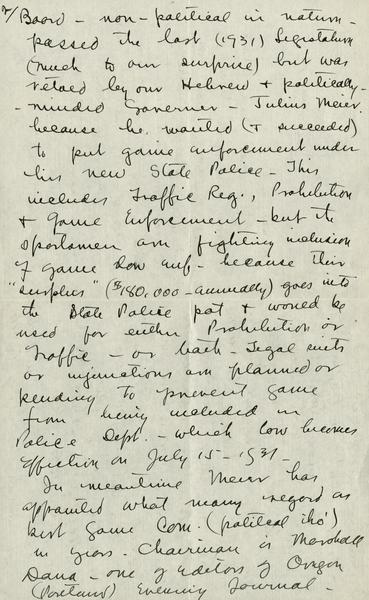 2/ Board - non-political in nature -
passed the last (1931) Legislature
(much to our surprise) but was
vetoed by our Hebrew & politically-
-minded Governor - Julius Meier
because he wanted (& succeeded)
to put game enforcement under
his new State Police - This
includes Traffic Reg., Prohibition
& Game Enforcement - but the
sportsmen are fighting inclusion
of Game Law enf - because their
"surplus" ($180,000 - annually) goes into
the State Police pot & would be
used for either Prohibition or
Traffic - or both - Legal suits
or injunctions are planned or
pending to prevent Game
from being included in
Police Dept. - which law becomes
effective on July 15 - 1931 -
In meantime Meier has
appointed what many regard as
best Game Com. (political tho')
in years - Chairman is Marshall
Dana - one of editors of Oregon
(Portland) Evening Journal -